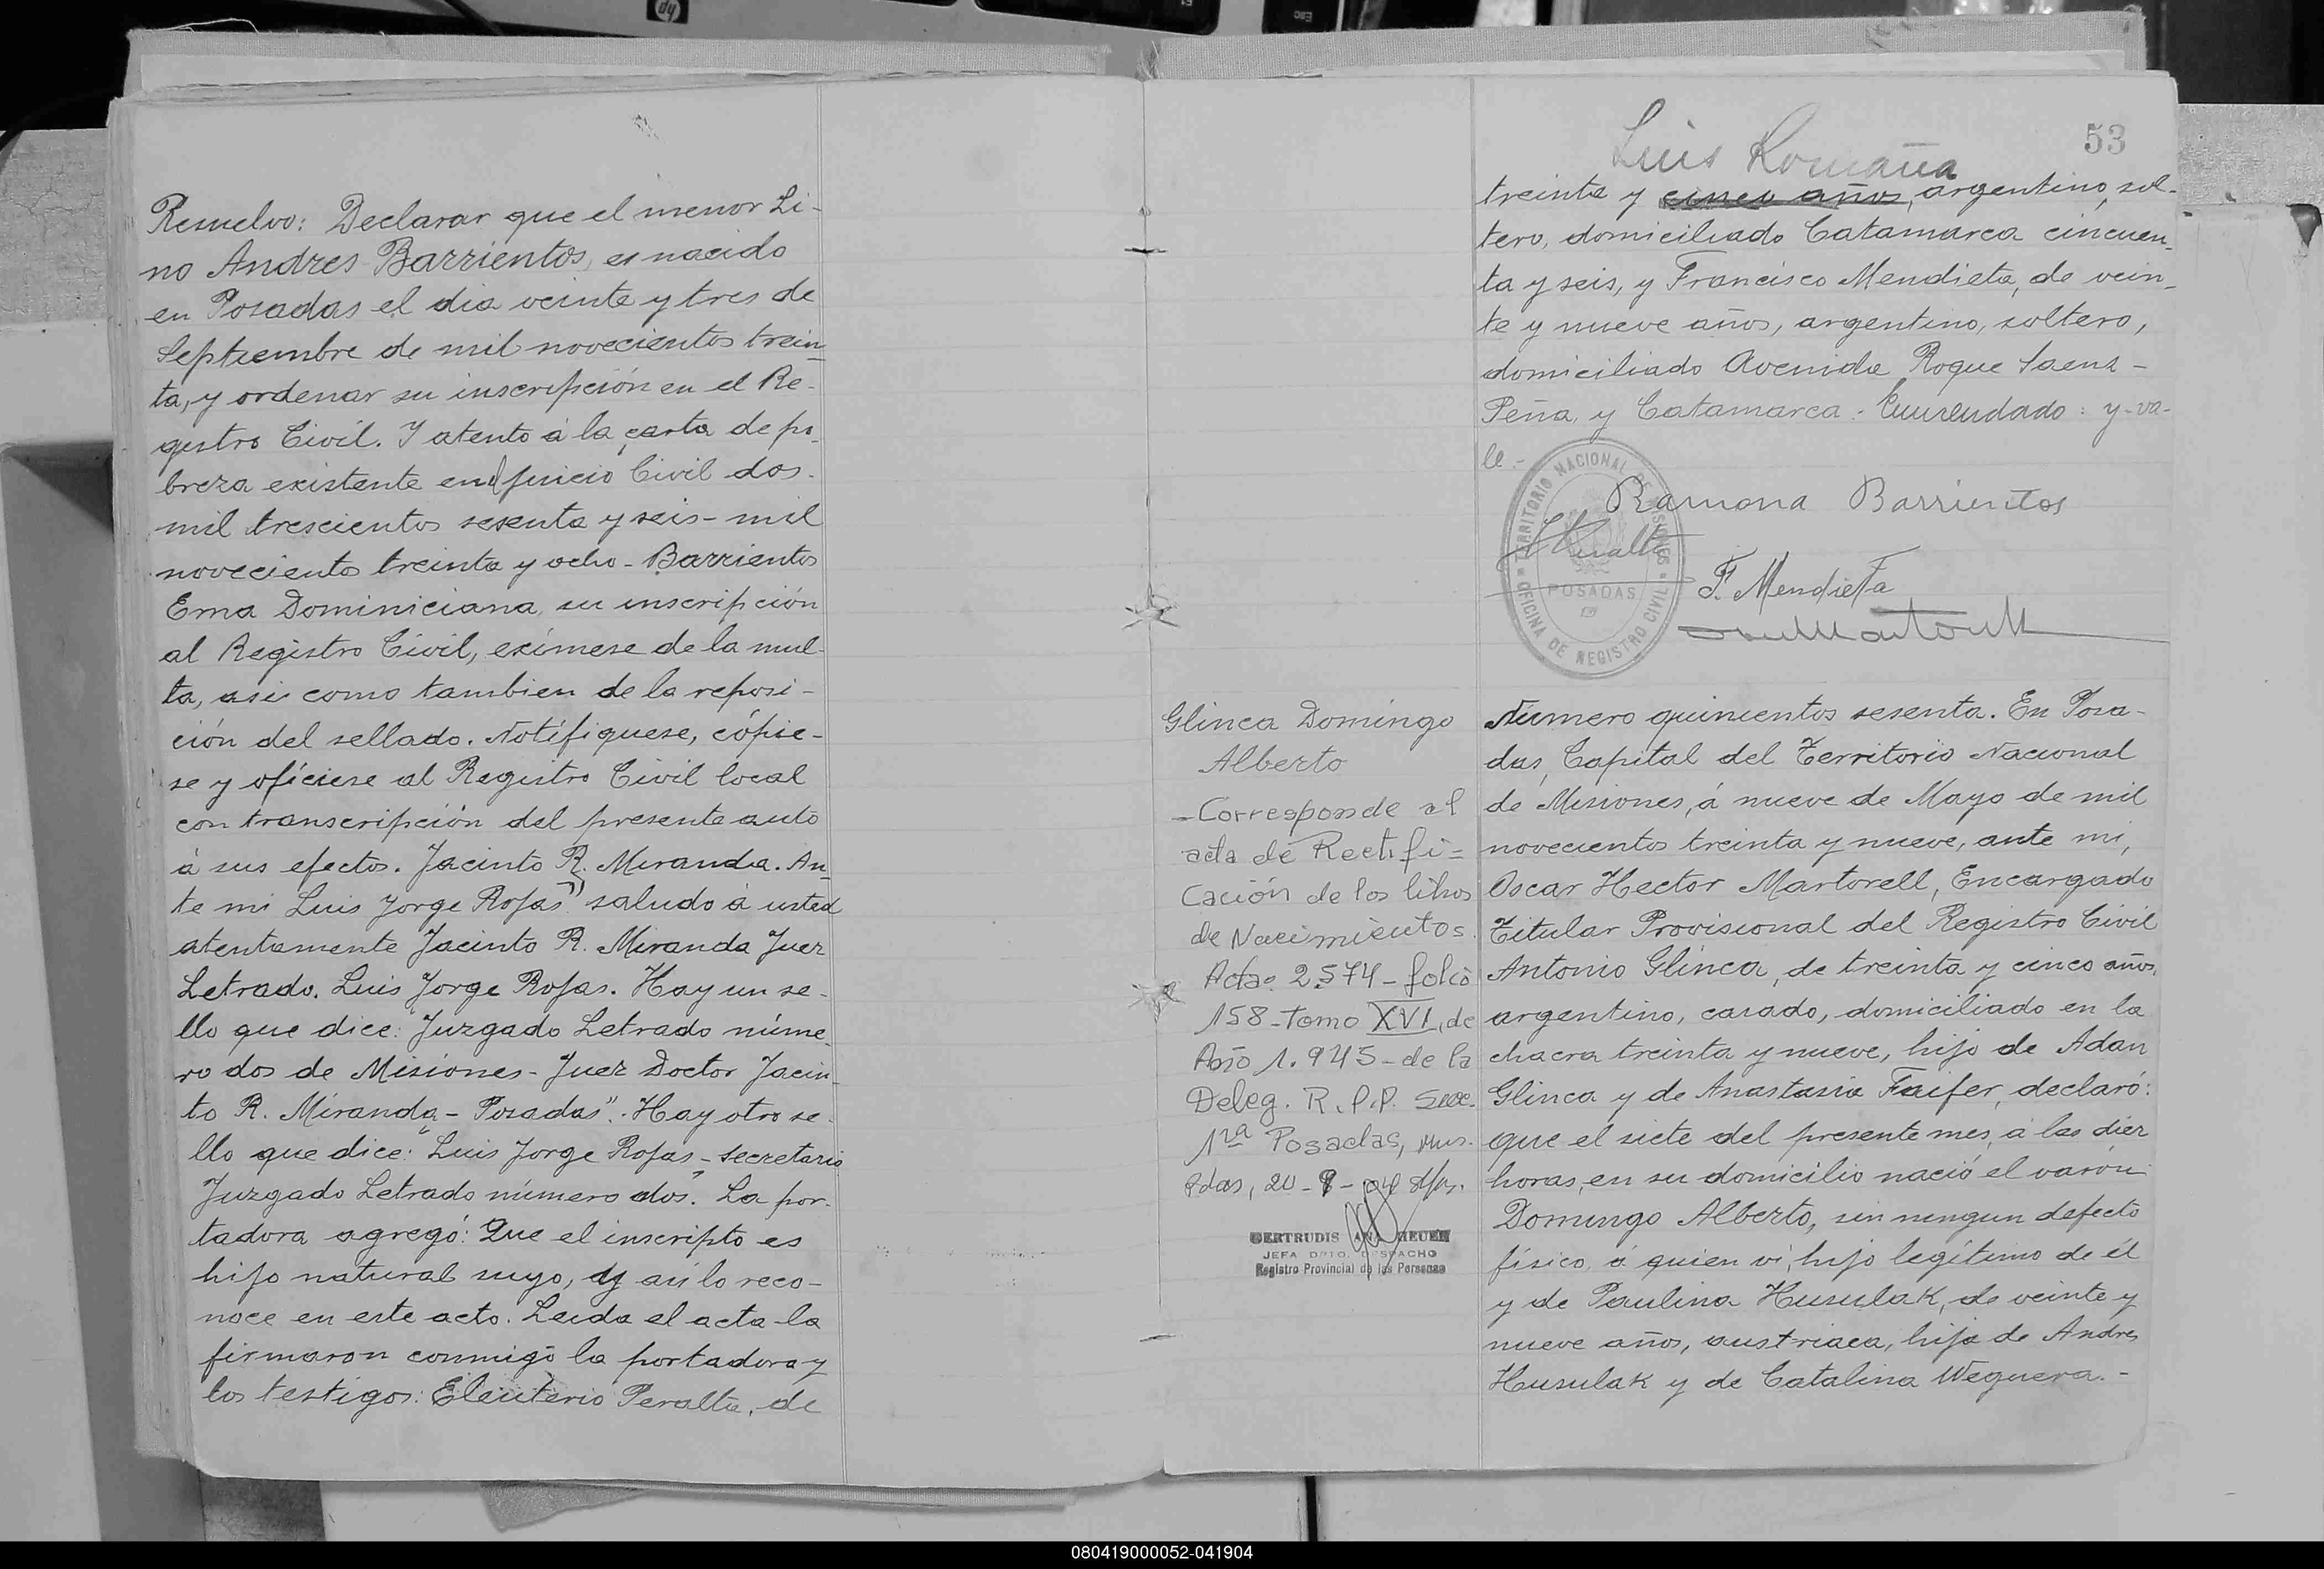 Resuelvo: Declarar que el menor Li-
no Andres Barrientos, es nacido
en Posadas el dia veinte y tres de
Septiembre de mil novecientos trein-
ta, y ordenar su inscripción en el Re-
gistro Civil. Y atento á la carta de po-
breza existente en el juicio Civil dos-
mil trescientos sesenta y seis - mil
noveciento treinta y ocho - Barrientos
Erna Dominiciana, su inscripción
al Registro Civil, exímese de la mul-
ta, asi como tambien de la reposi-
ción del sellado. Notífiquese, cópie-
se y ofíciese al Registro Civil local
con transcripción del presente auto
á sus efectos. Jacinto R. Miranda. An-
te mi Luis Jorge Rojas" saludo á usted
atentamente Jacinto R. Miranda Juez
Letrado. Luis Jorge Rojas. Hay un se-
llo que dice: "Juzgado Letrado núme-
ro dos de Misiones - Juez Doctor Jacin-
to R. Miranda - Posadas". Hay otro se-
llo que dice: "Luis Jorge Rojas - secretario
Juzgado Letrado número dos". La por-
tadora agregó: Que el inscripto es
hijo natural suyo, y asi lo reco-
noce en este acto. Leida el acta la
firmaron conmigo la portadora y
los testigos: Eleuterio Peralta, de
53
Luis Romaña
treinta y cinco años, argentino, sol-
tero, domiciliado Catamarca cincuen-
ta y seis, y Francisco Mendieta, de vein-
te y nueve años, argentino, soltero,
domiciliado Avenida Roque Saenz -
Peña y Catamarca: Enmendado: y-va-
le.-
TERRITORIO NACIONAL DE MISIONES
POSADAS
OFICINA DE REGISTRO CIVIL
Ramona Barrientos
F. Mendieta
Glinca Domingo
Alberto
- Corresponde al
acta de Rectifi=
cación de los libros
de Nacimientos.
Acta: 2.574 - folio
158 - tomo XVI, de
Año 1.945 - de la
Deleg. R.P.P. Secc.
1ra Posadas, Mns.
Pdas, 20-9-
GERTRUDIS
JEFA DPTO. DESPACHO
Registro Provincial de las Personas
Número quinientos sesenta. En Posa-
das, Capital del Territorio Nacional
de Misiones, á nueve de Mayo de mil
novecientos treinta y nueve, ante mi,
Oscar Hector Martorell, Encargado
Titular Provisional del Registro Civil
Antonio Glinca, de treinta y cinco años,
argentino, casado, domiciliado en la
chacra treinta y nueve, hijo de Adan
Glinca y de Anastasia Faifer, declaró:
que el siete del presente mes, á las diez
horas, en su domicilio nació el varón
Domingo Alberto, sin ningun defecto
físico, á quien vi, hijo legítimo de él
y de Paulina Husulak, de veinte y
nueve años, austriaca, hija de Andres
Husulak y de Catalina Weguera.-
080419000052-041904